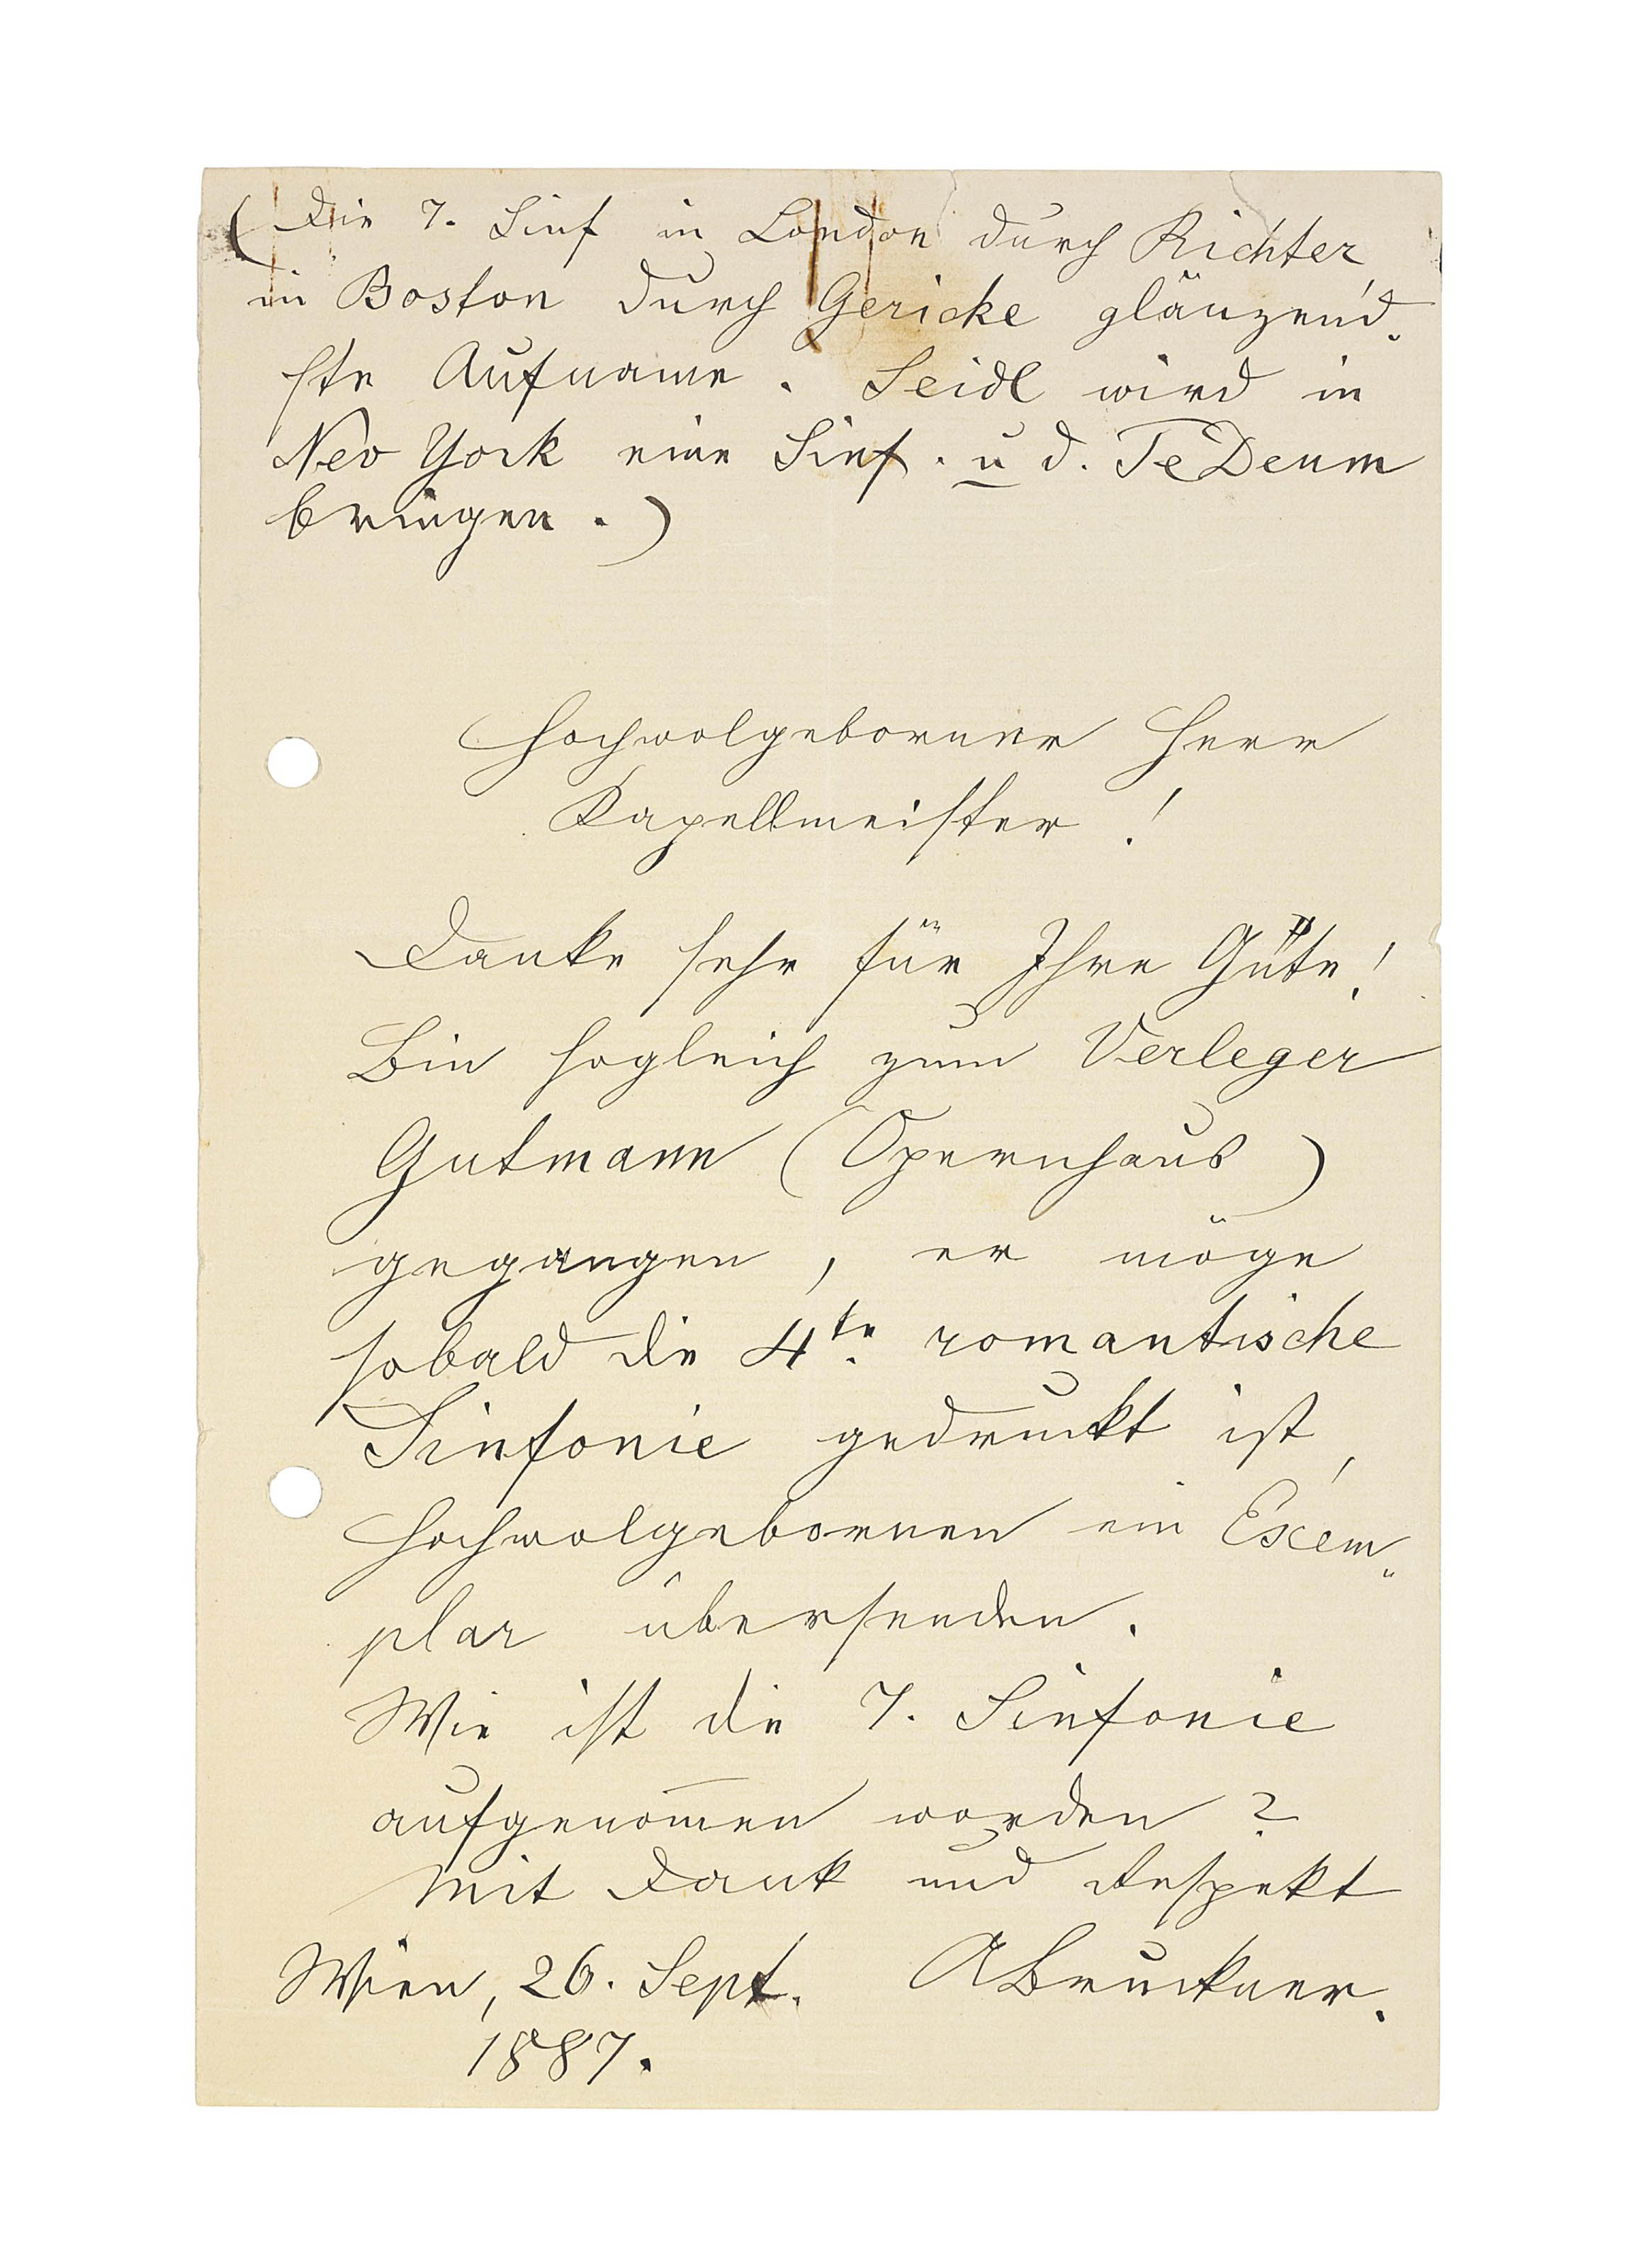 (Die 7. Sinf in London durch Richter,
in Boston durch Gericke glänzend-
ste Aufname. Seidl wird in
Nev York eine Sinf. u d. Te Deum
bringen.)
Hochwolgeborner Herr
Kapellmeister!
Danke sehr für Ihre Güte!
Bin sogleich zum Verleger
Gutmann (Opernhaus)
gegangen, er möge
sobald die 4te. romantische
Sinfonie gedruckt ist,
Hochwolgebornen ein Exem-
plar übersenden.
Wie ist die 7. Sinfonie
aufgenom̅en worden?
Mit Dank und Respekt
Wien, 26. Sept. ABruckner.
1887.